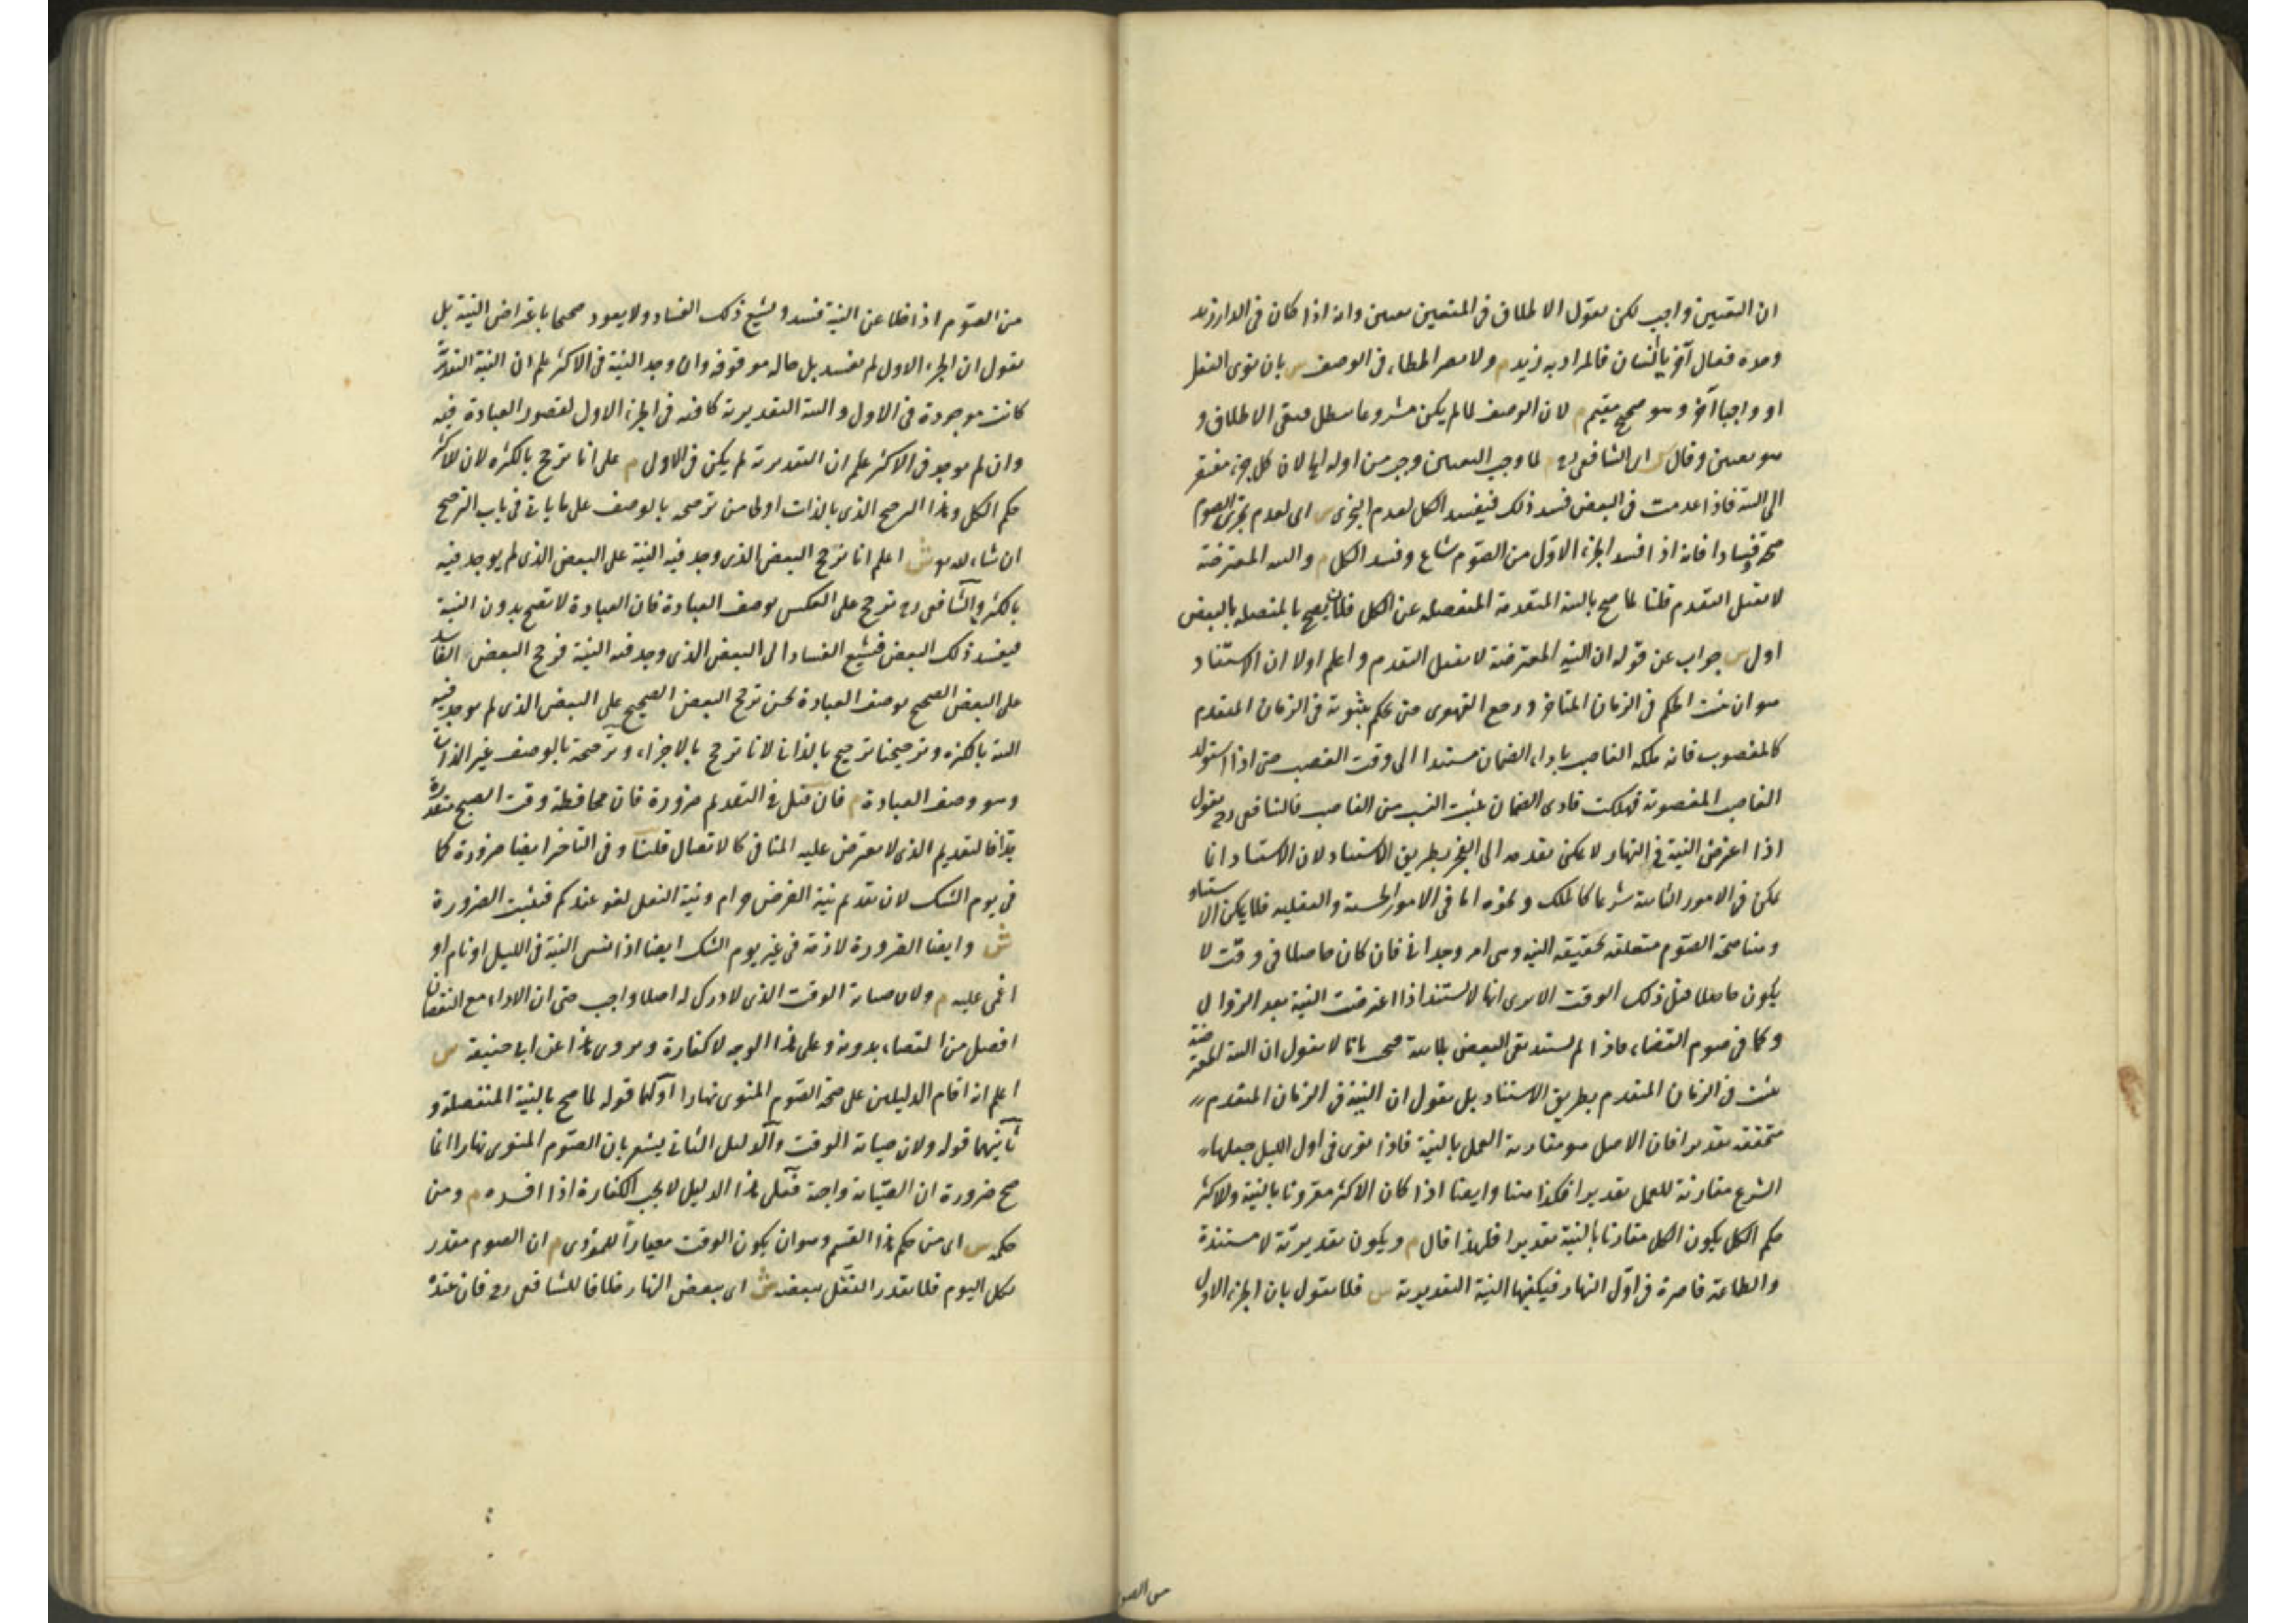 ان التعيين واجب لكن نقول الاطلاق فى المتعين تعيين وانه اذا كان فى الدار زيد
وحده فقال آخر يا انسان فالمراد به زيد م ولا يضر الخطاء فى الوصف س بان نوى النفل
او واجبا آخر وهو صحيح مقيم م لان الوصف لما لم يكن مشروعا يبطل فبقى الاطلاق و
هو تعيين وقال س اى الشافعى رح م لما وجب التعيين وجب من اوله الى لان كل جزء مفتقر
الى النية فاذا عدمت فى البعض فسد ذلك فيفسد الكل لعدم التجزى س اى لعدم تجزى الصوم
صحة وفسادا فانه اذا فسد الجزء الاول من الصوم شاع وفسد الكل م والنية المعترضة
لا تقبل التقدم قلنا لما صح بالنية المتقدمة المنفصلة عن الكل فلان يصح بالمتصلة بالبعض
اولى س جواب عن قوله ان النية المعترضة لا تقبل التقدم واعلم اولا ان الاستناد
هو ان يثبت الحكم فى الزمان المتأخر ورجع القهقرى حتى يحكم بثبوته فى الزمان المتقدم
كالمغصوب فانه يملكه الغاصب باداء الضمان مستندا الى وقت الغصب حتى اذا استولد
الغاصب المغصوبة فهلكت فادى الضمان يثبت النسب من الغاصب فالشافعى رح يقول
اذا اعترض النية فى النهار لا يمكن تقدمه الى الفجر بطريق الاستناد لان الاستناد انما
يمكن فى الامور الثابتة شرعا كالملك ونحوه اما فى الامور الحسية والعقلية فلا يمكن الاستناد
وهنا صحة الصوم متعلقة بحقيقة النية وهى امر وجدانى فان كان حاصلا فى وقت لا
يكون حاصلا قبل ذلك الوقت الا يرى انها لا تستند اذا اعترضت النية بعد الزوال
وكما فى صوم القضاء فاذا لم يستند بقى البعض بلا نية فنجيب بانا لا نقول ان النية المعترضة
يثبت فى الزمان المتقدم بطريق الاستناد بل نقول ان النية فى الزمان المتقدم
متحققة تقديرا فان الاصل هو مقارنة العمل بالنية فاذا نوى فى اول الليل جعلها
الشرع مقارنة للعمل تقديرا فكذا هنا وايضا اذا كان الاكثر مقرونا بالنية وللاكثر
حكم الكل يكون الكل مقارنا بالنية تقديرا فلهذا قال م ويكون تقديرية لا مستندة
والطاعة قاصرة فى اول النهار فيكفيها النية التقديرية س فلا نقول بان الجزء الاول
من الصو
من الصوم اذا خلا عن النية فسد ويشيع ذلك الفساد ولا يعود صحيحا باعتراض النية بل
نقول ان الجزء الاول لم يفسد بل حاله موقوفة وان وجد النية فى الاكثر علم ان النية التقديرية
كانت موجودة فى الاول والنية التقديرية كافية فى الجزء الاول لقصور العبادة فيه
وان لم يوجد فى الاكثر علم ان التقديرية لم يكن فى الاول م على انا نرجح بالكثرة لان للاكثر
حكم الكل وهذا الترجيح الذى بالذات اولى من ترجيحه بالوصف على ما ياتى فى باب الترجيح
ان شاء الله تع ش اعلم انا نرجح البعض الذى وجد فيه النية على البعض الذى لم يوجد فيه
بالكثرة والشافعى رح يرجح على العكس بوصف العبادة فان العبادة لا تصح بدون النية
فيفسد ذلك البعض فيشيع الفساد الى البعض الذى وجد فيه النية فرجح البعض الفاسد
على البعض الصحيح بوصف العبادة نحن نرجح البعض الصحيح على البعض الذى لم يوجد فيه
النية بالكثرة وترجيحنا ترجيح بالذات لانا نرجح بالاجزاء وترجيحه بالوصف غير الذاتى
وهو وصف العبادة م فان قيل فى التقديم ضرورة فان محافظة وقت الصبح متعذرة
جدا فالتقديم الذى لا يعترض عليه المنافى كالاتصال قلنا وفى التاخير ايضا ضرورة كما
فى يوم الشك لان تقديم نية الفرض حرام ونية النفل لغو عندكم فيثبت الضرورة
ش وايضا الضرورة لازمة فى غير يوم الشك ايضا اذا نسى النية فى الليل او نام او
اغمى عليه م ولان صيانة الوقت الذى لا درك له اصلا واجب حتى ان الاداء مع النقصان
افضل من القضاء بدونه وعلى هذا الوجه لا كفارة ويروى هذا عن ابى حنيفة س
اعلم انه اقام الدليلين على صحة الصوم المنوى نهارا اولهما قوله لما صح بالنية المنفصلة و
ثانيهما قوله ولان صيانة الوقت والدليل الثانى يشعر بان الصوم المنوى نهارا انما
صح ضرورة ان الصيانة واجبة فعلى هذا الدليل لا يجب الكفارة اذا افسده م ومن
حكمه س اى من حكم هذا القسم وهو ان يكون الوقت معيارا للمؤدى م ان الصوم مقدر
بكل اليوم فلا يقدر النفل ببعضه ش اى ببعض النهار خلافا للشافعى رح فان عنده